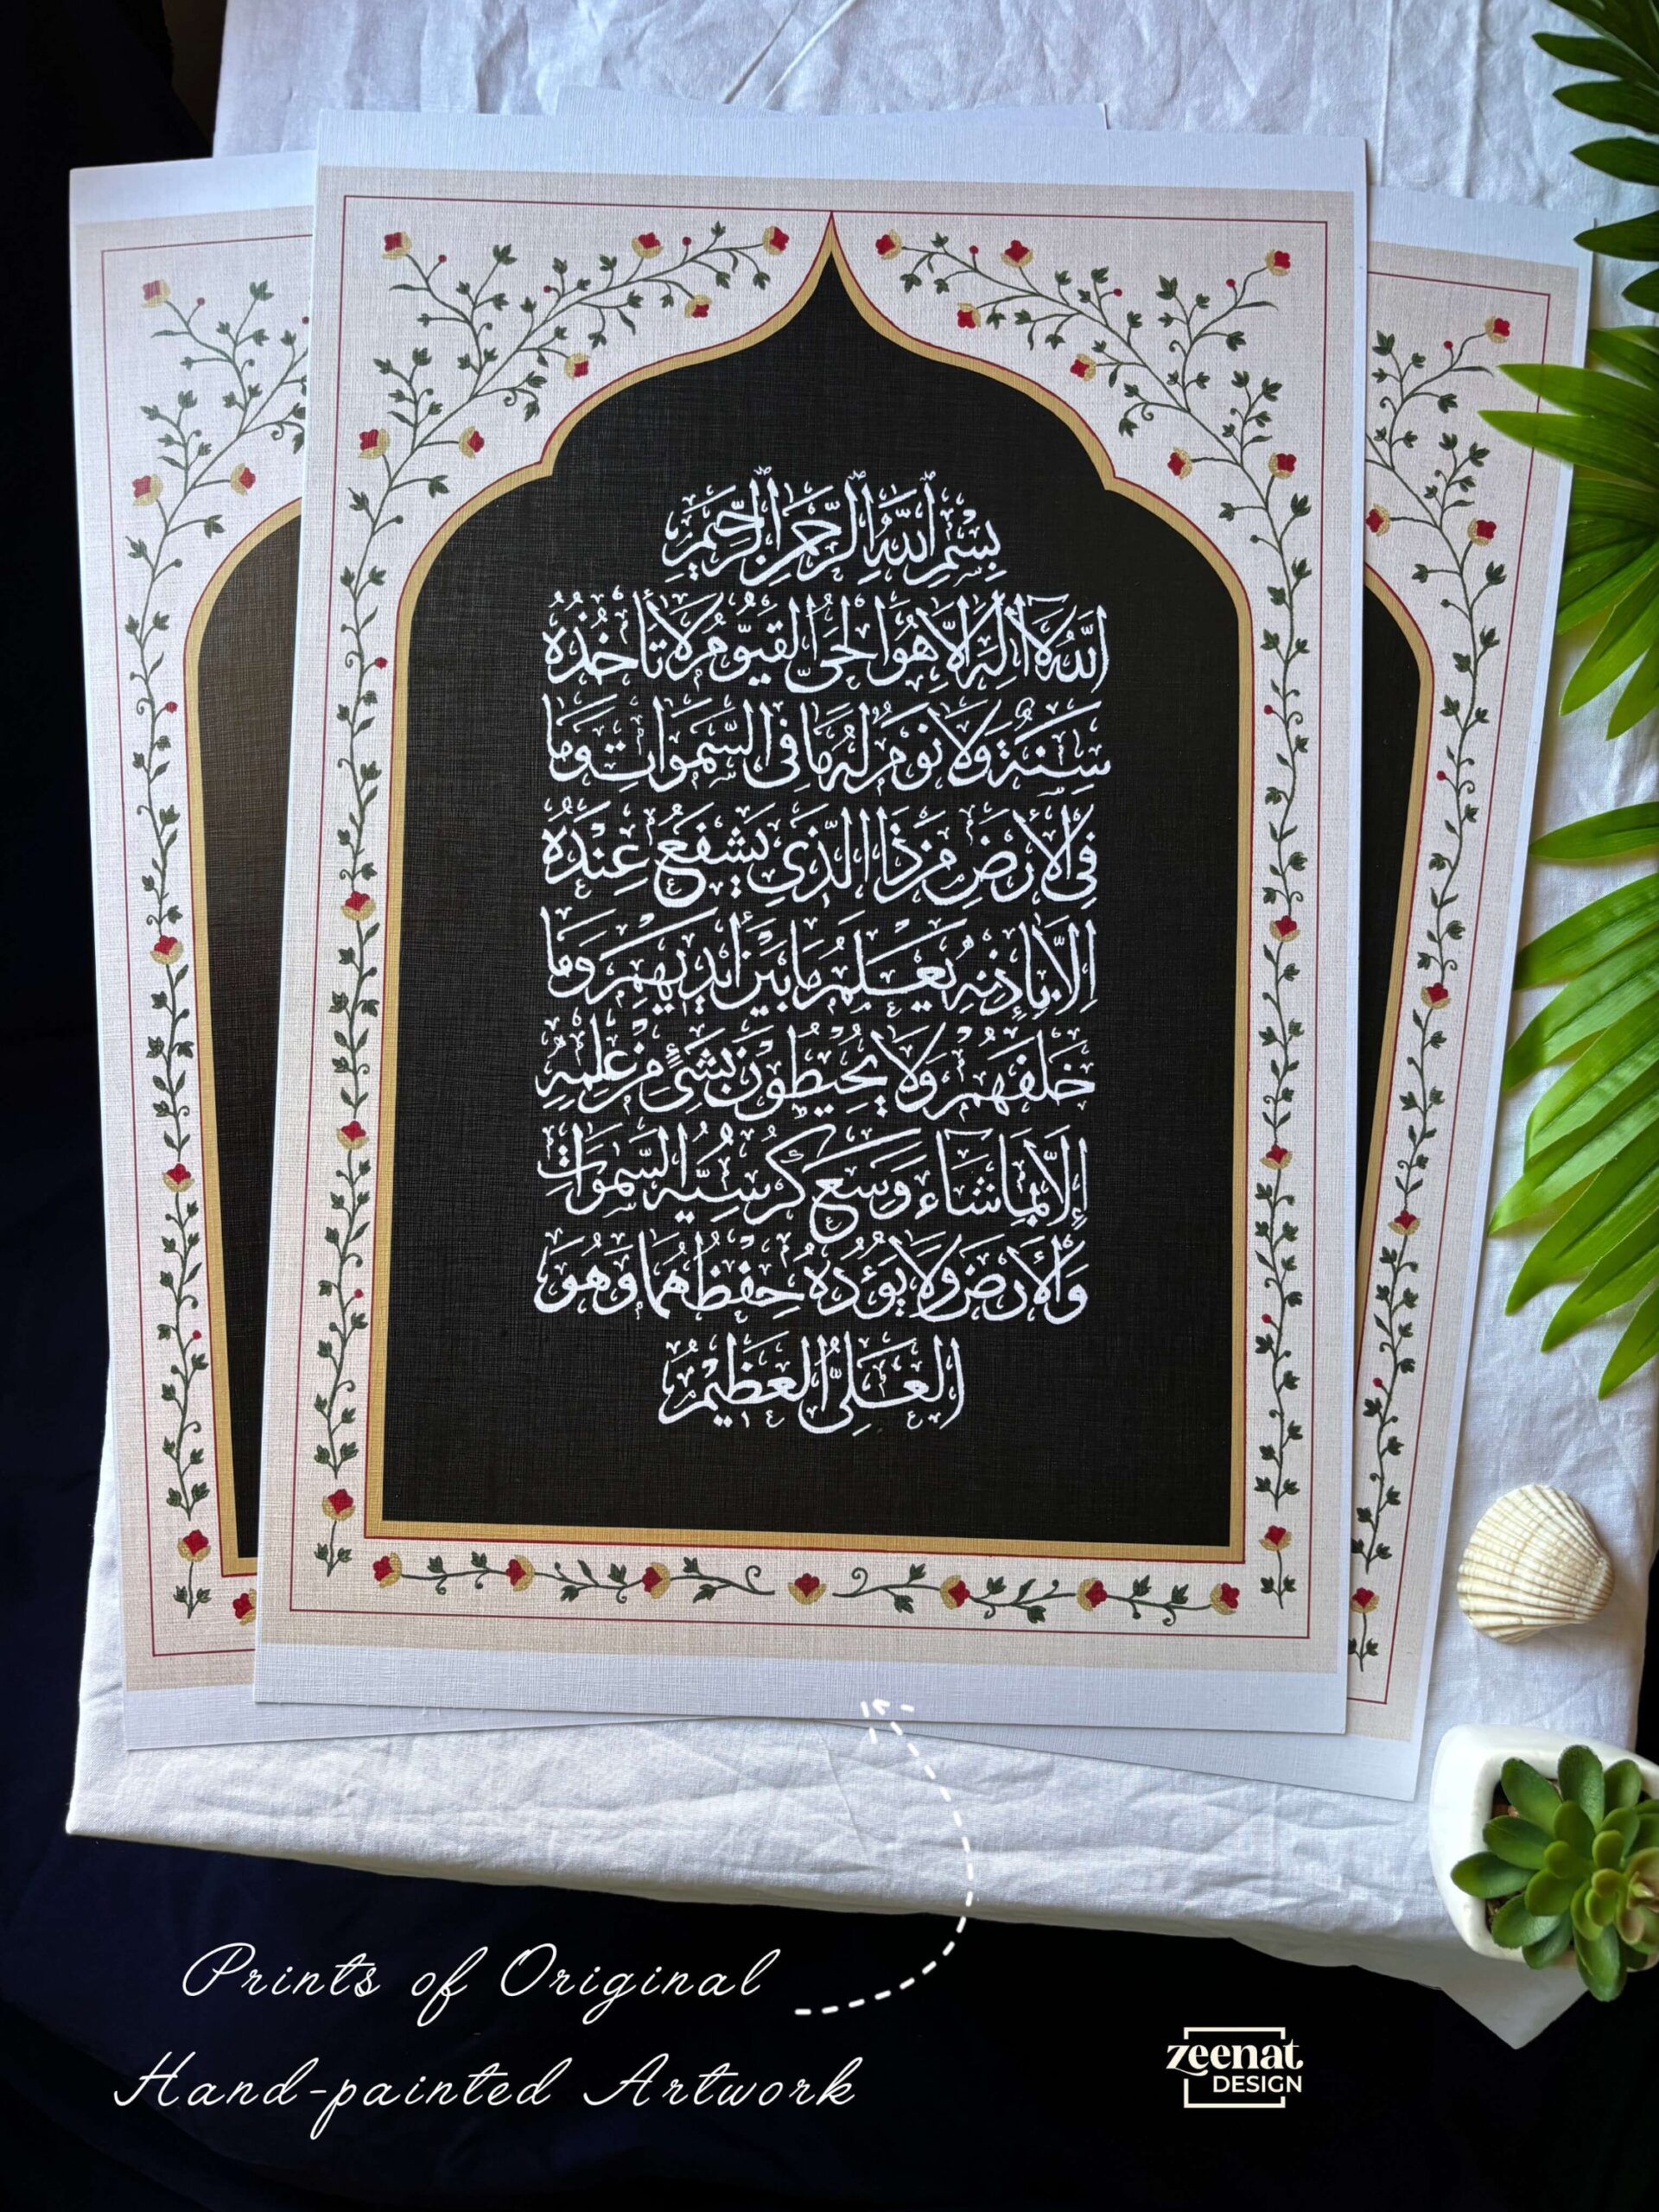 بِسْمِ اللهِ الرَّحْمٰنِ الرَّحِيْمِ
اَللهُ لَا اِلٰهَ اِلَّا هُوَ الْحَىُّ الْقَيُّوْمُ لَا تَأْخُذُهٗ
سِنَةٌ وَلَا نَوْمٌ لَهٗ مَا فِى السَّمٰوَاتِ وَمَا
فِى الْأَرْضِ مَنْ ذَا الَّذِى يَشْفَعُ عِنْدَهٗ
اِلَّا بِإِذْنِهٖ يَعْلَمُ مَا بَيْنَ اَيْدِيْهِمْ وَمَا
خَلْفَهُمْ وَلَا يُحِيْطُوْنَ بِشَىْءٍ مِنْ عِلْمِهٖ
إِلَّا بِمَا شَاءَ وَسِعَ كُرْسِيُّهُ السَّمٰوَاتِ
وَالْأَرْضَ وَلَا يَؤُدُهٗ حِفْظُهُمَا وَهُوَ
الْعَلِىُّ الْعَظِيْمُ
Prints of Original
Hand-painted Artwork
zeenat
DESIGN